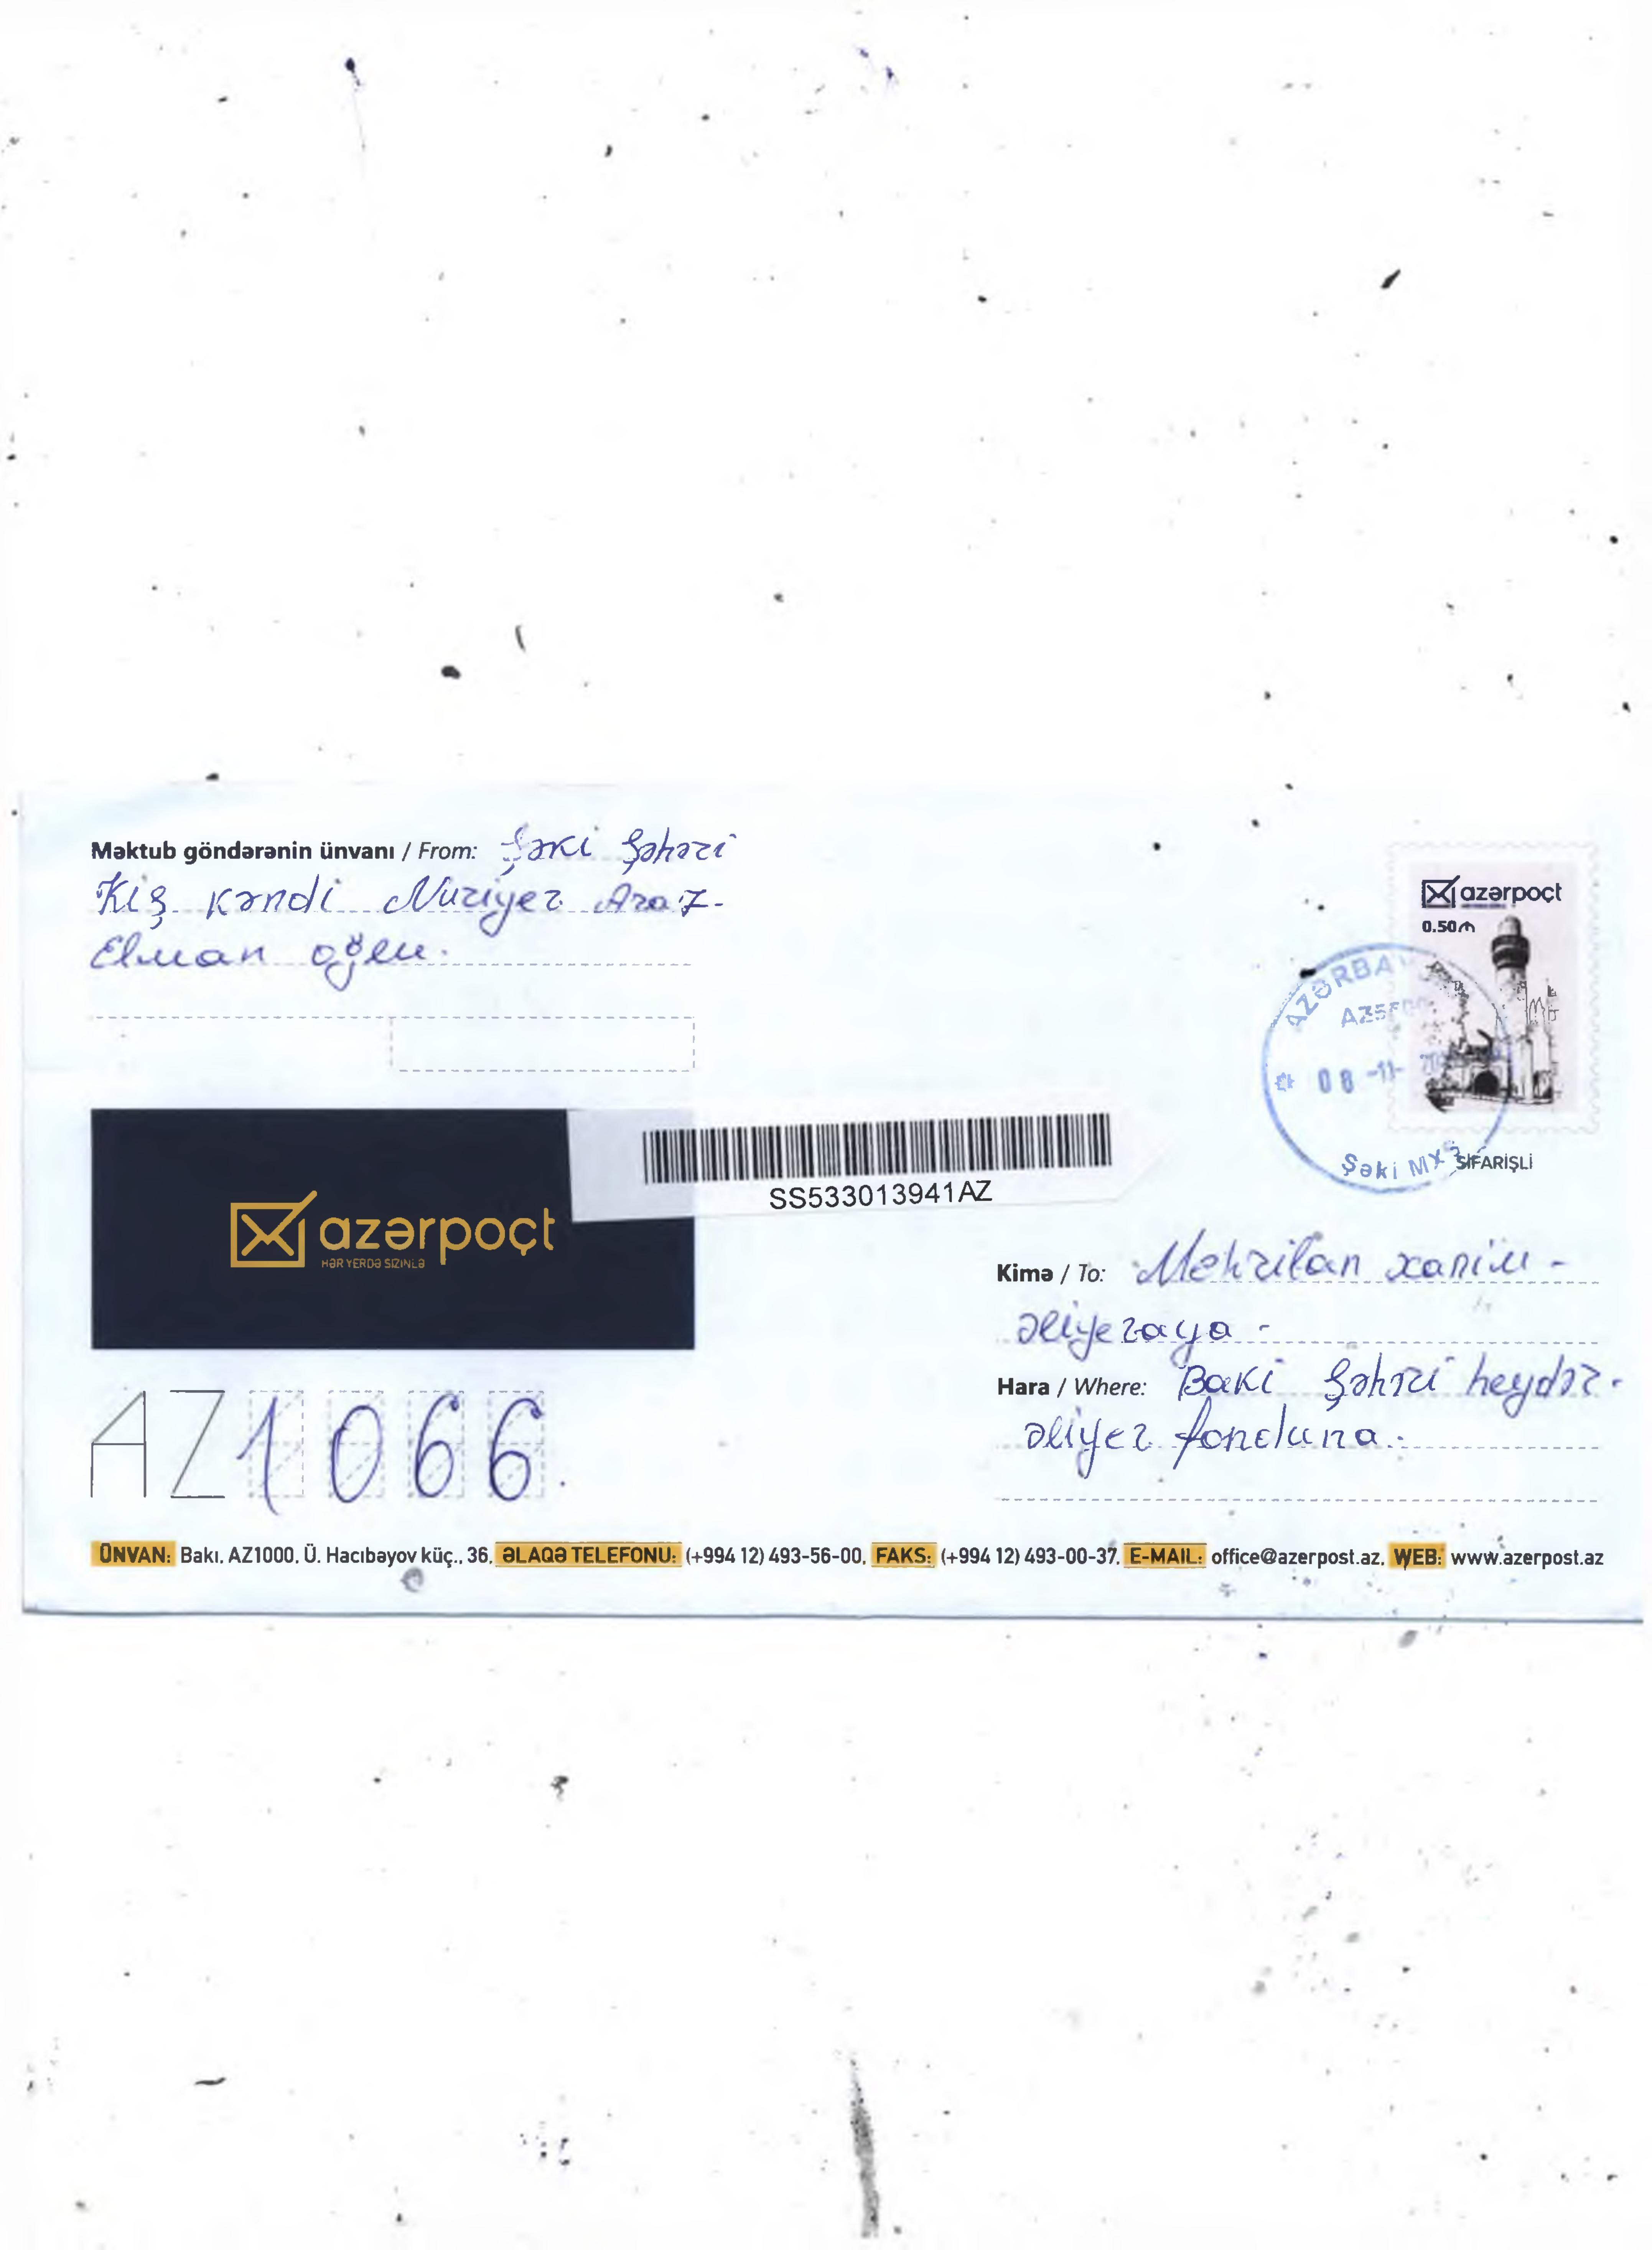 Məktub göndərənin ünvanı / From: Şəki Şəhəri
Kiş kəndi Nuriyev Araz
Elman oğlu.
azərpoçt
0.50₼
AZƏRBA
08 -11-
Şəki MXŞ
SİFARİŞLİ
SS533013941AZ
azərpoçt
HƏR YERDƏ SİZİNLƏ
Kimə / To: Mehriban xanım -
əliyevaya -
Hara / Where: Baki Şəhəri heydər.
əliyev fonduna.
AZ1066.
ÜNVAN: Bakı, AZ1000, Ü. Hacıbəyov küç., 36, ƏLAQƏ TELEFONU: (+994 12) 493-56-00, FAKS: (+994 12) 493-00-37, E-MAIL: office@azerpost.az, WEB: www.azerpost.az